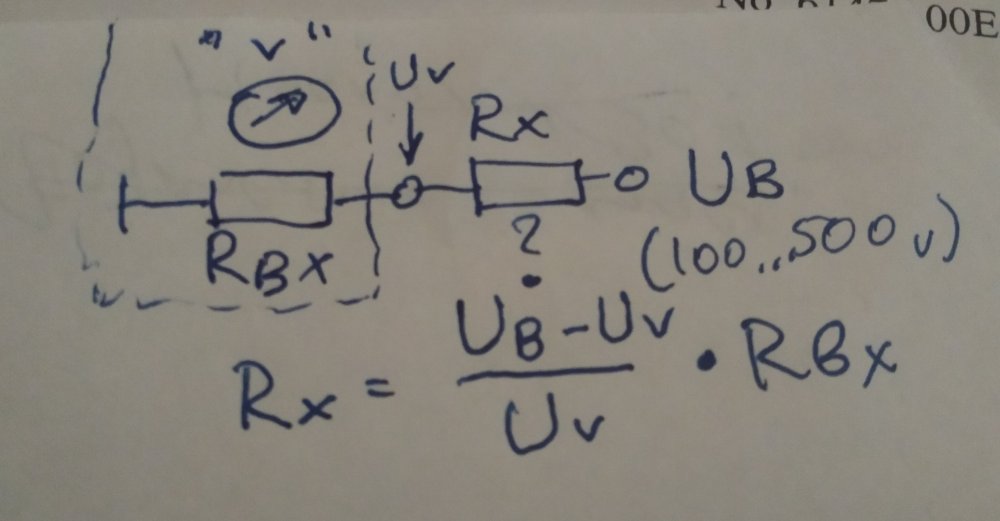 00E
"V"
Uv
Rx
UB
RBx
?
(100..500v)
Rx = UB-Uv / Uv · RBx